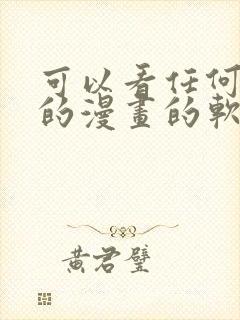 可以看任何
的漫畫的軟
黃君璧